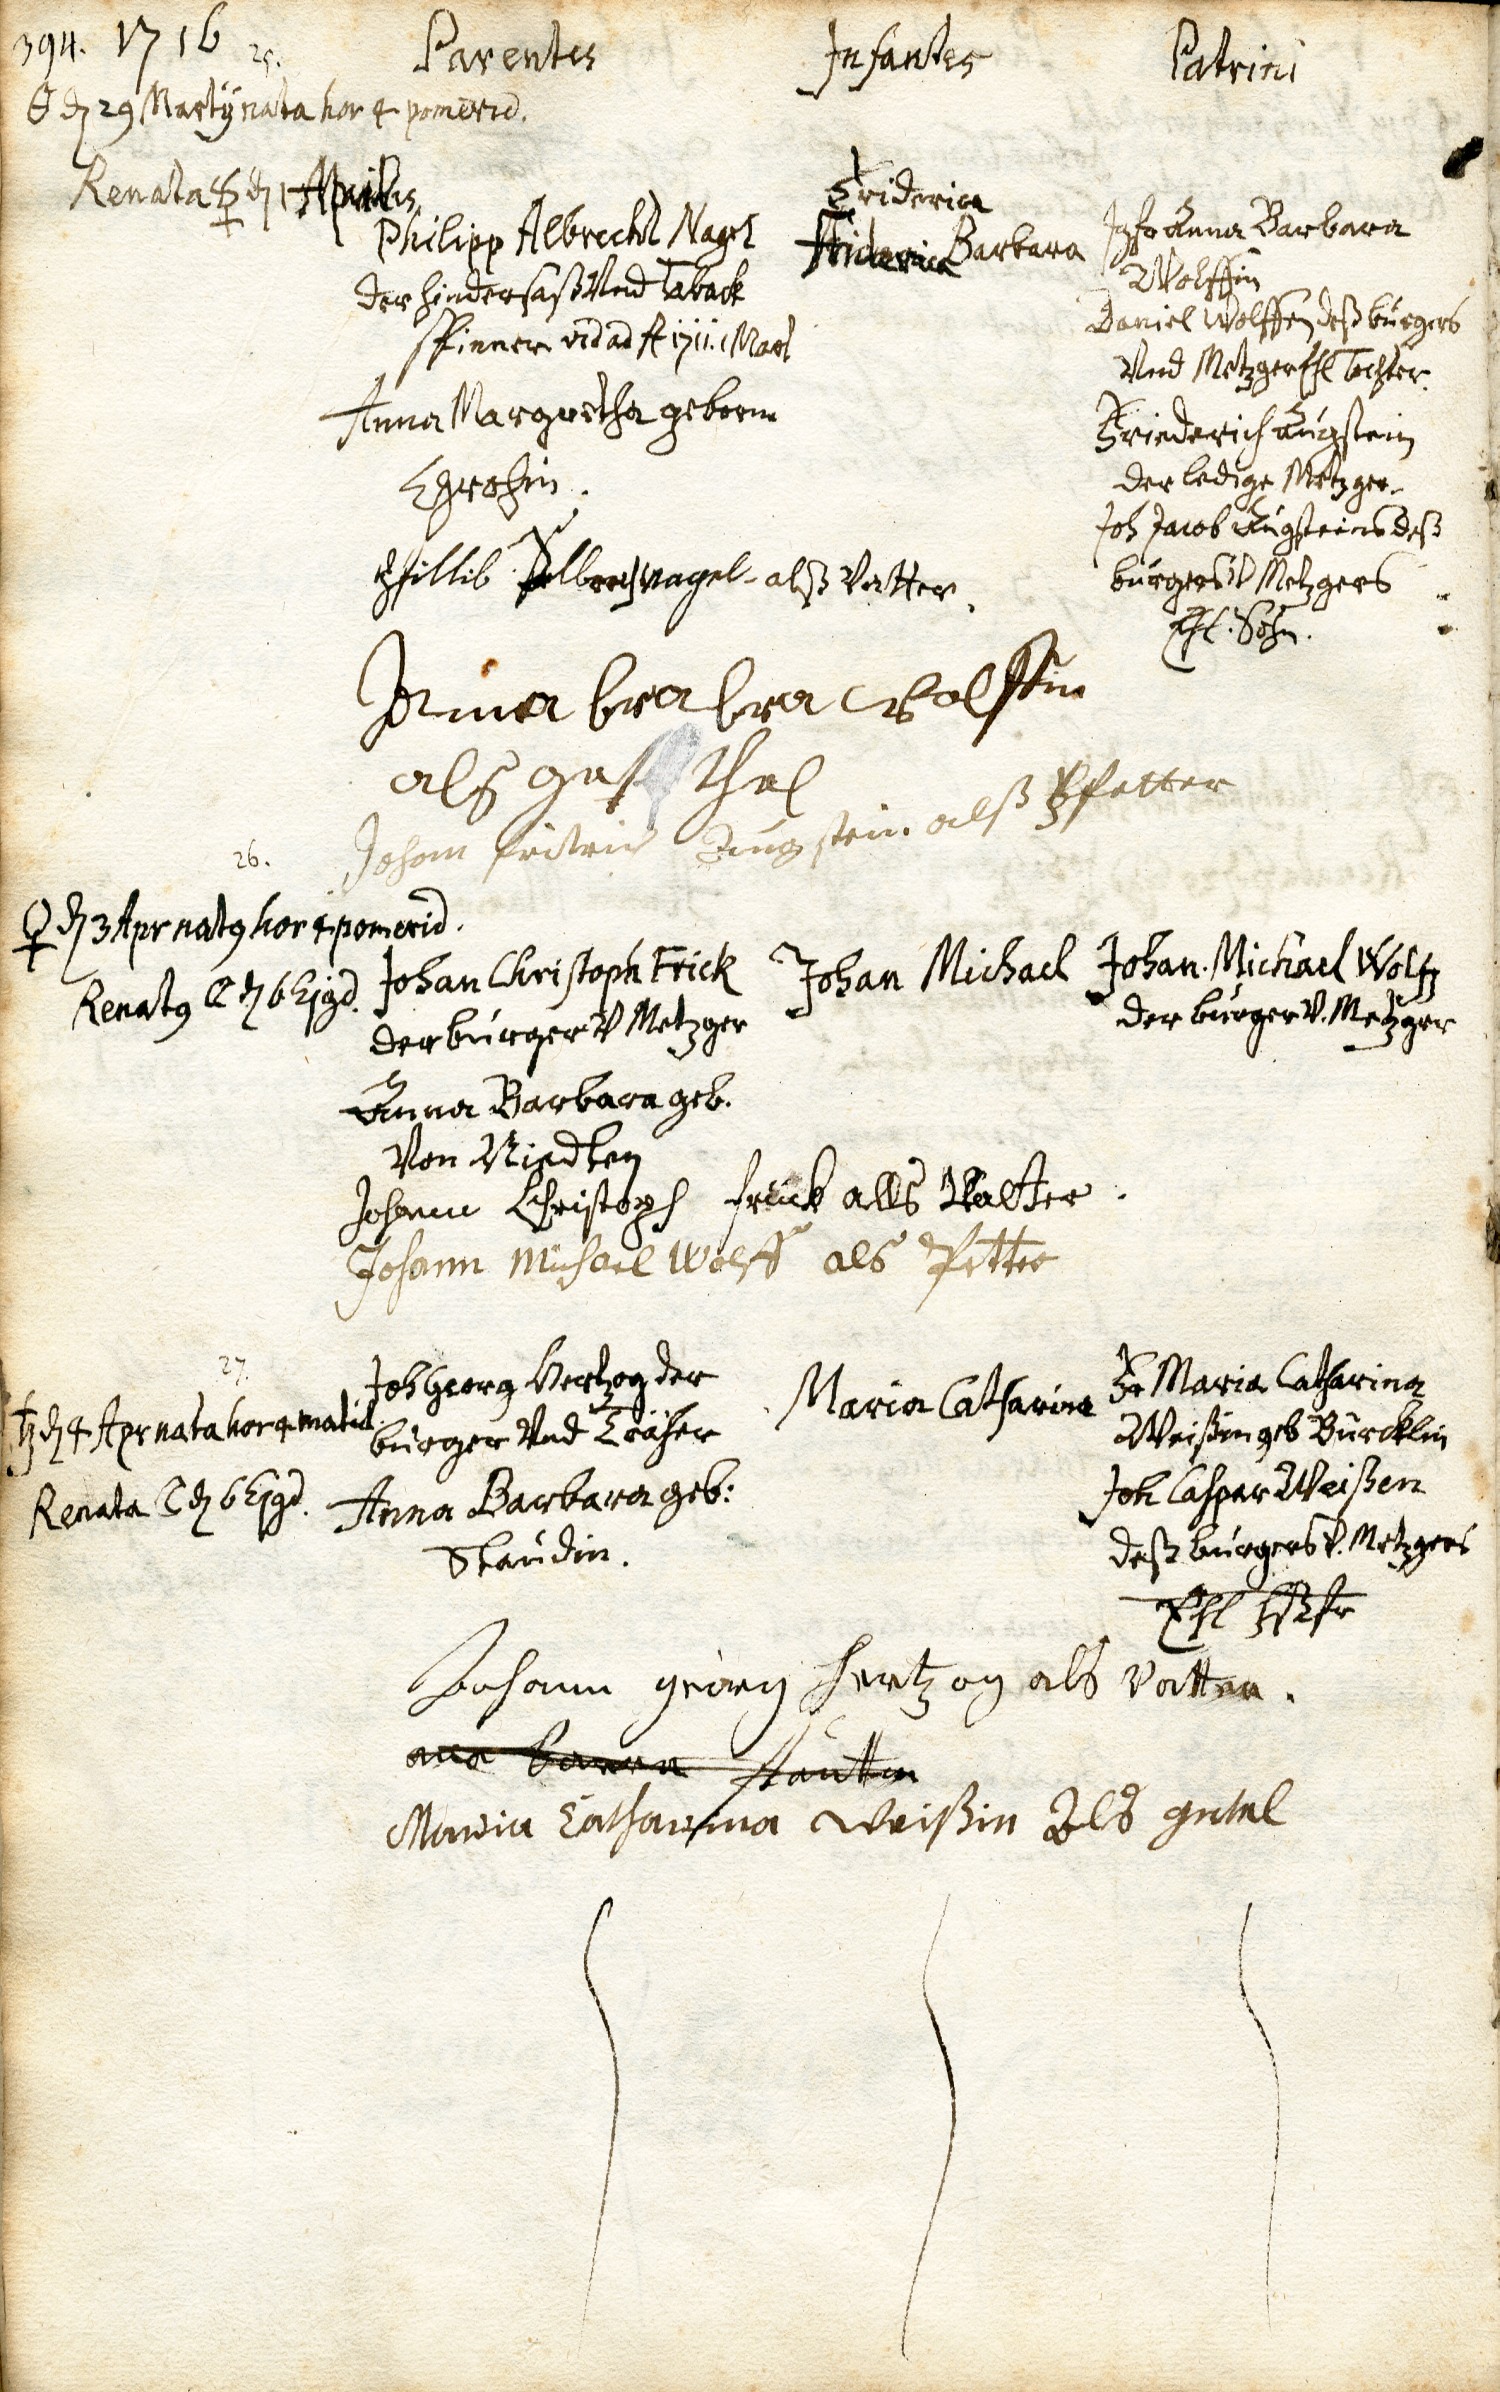 394. 1716 Parentes Infantes Patrini
25.
☉ d 29 Martij nata hor 4 pomerid.
Renata ☿ d 1 Aprilis
Philipp Albrecht Nagel
der hindersaß Vnd Taback
spinner vid ad A 1711. 1 Mart
Anna Margretha geborne
Friderica
Friderica Barbara
Jgfr Anna Barbara
Wolffin
Daniel Wolffen deß burgers
Vnd Metzgers Ehl Tochter.
Friederich Augstein
der ledige Metzger
Joh Jacob Augsteins deß
burgers V Metzgers
Ehl. Sohn.
Pfillib Albrech nagel alß Vatter.
Anna brabra wolffin
als
Johann fridrich Augstein alß Pfetter
26.
♀ d 3 Apr natq hor 4 pomerid.
Renatq ☾ d 6 Ejgd.
Johan Christoph Frick
der burger V Metzger
Anna Barbara geb.
Von Niedten
Johan Michael
Johan Michael Wolff
der burger V. Metzger
Johann Christoph frick alls Vatter.
Johann Michael Wolff als Petter
27.
♄ d 4 Apr nata hor 4 matid.
Renata ☾ d 6 Ejgd.
Joh Georg Hertzog der
burger Vnd
Anna Barbara geb:
Staudin.
Maria Catharina
Fr Maria Catharina
Weißin geb Bürcklin
Joh Caspar Weißen
deß burgers V. Metzgers
Ehl
Johann georg hertzog als Vatter.
Stautin
Maria Catharina Weißin Als getel